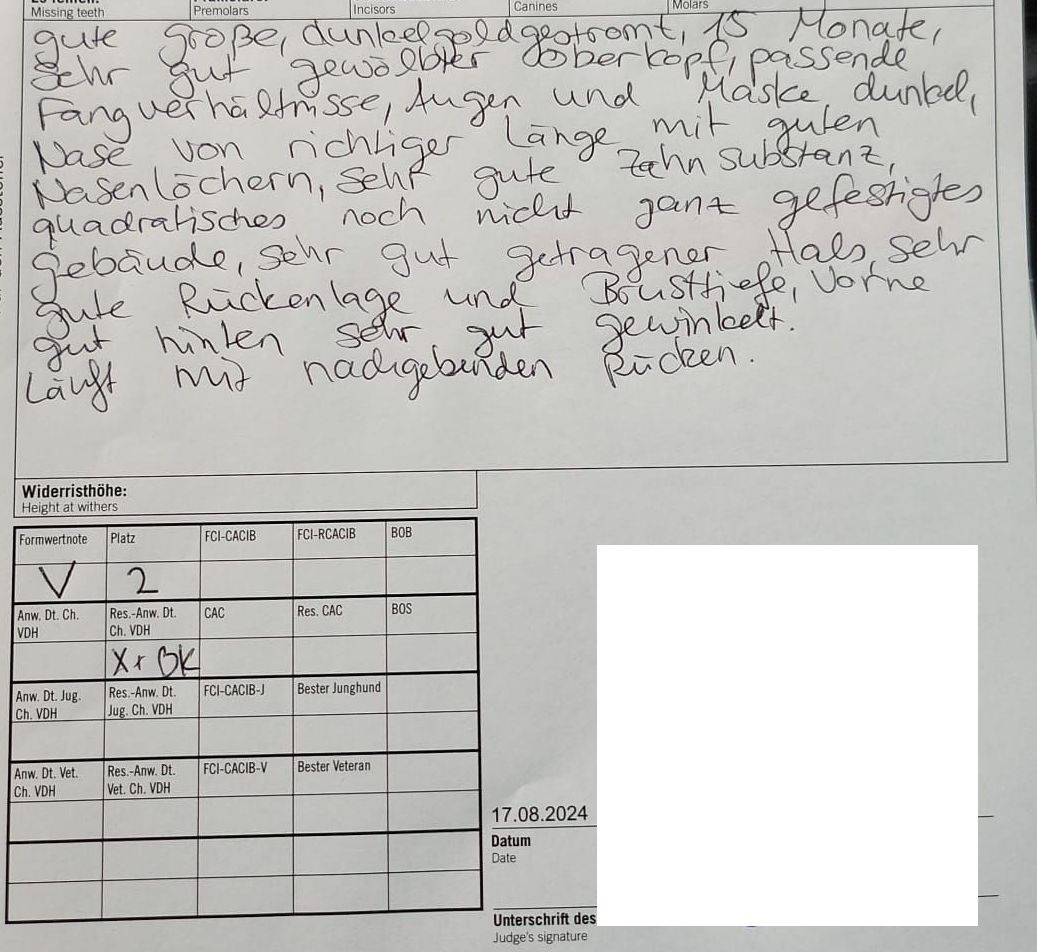 Missing teeth Premolars Incisors Canines Molars
gute Größe, dunkelgoldgestromt, 15 Monate,
sehr gut gewölbter Oberkopf, passende
Fangverhältnisse, Augen und Maske dunkel,
Nase von richtiger Länge mit guten
Nasenlöchern, sehr gute Zahnsubstanz,
quadratisches noch nicht ganz gefestigtes
Gebäude, sehr gut getragener Hals, sehr
gute Rückenlage und Brusttiefe, Vorne
gut hinten sehr gut gewinkelt.
Läuft mit nachgebenden Rücken.
Widerristhöhe:
Height at withers
Formwertnote Platz FCI-CACIB FCI-RCACIB BOB
V 2
Anw. Dt. Ch. VDH Res.-Anw. Dt. Ch. VDH CAC Res. CAC BOS
X + BK
Anw. Dt. Jug. Ch. VDH Res.-Anw. Dt. Jug. Ch. VDH FCI-CACIB-J Bester Junghund
Anw. Dt. Vet. Ch. VDH Res.-Anw. Dt. Vet. Ch. VDH FCI-CACIB-V Bester Veteran
17.08.2024
Datum
Date
Unterschrift des
Judge's signature